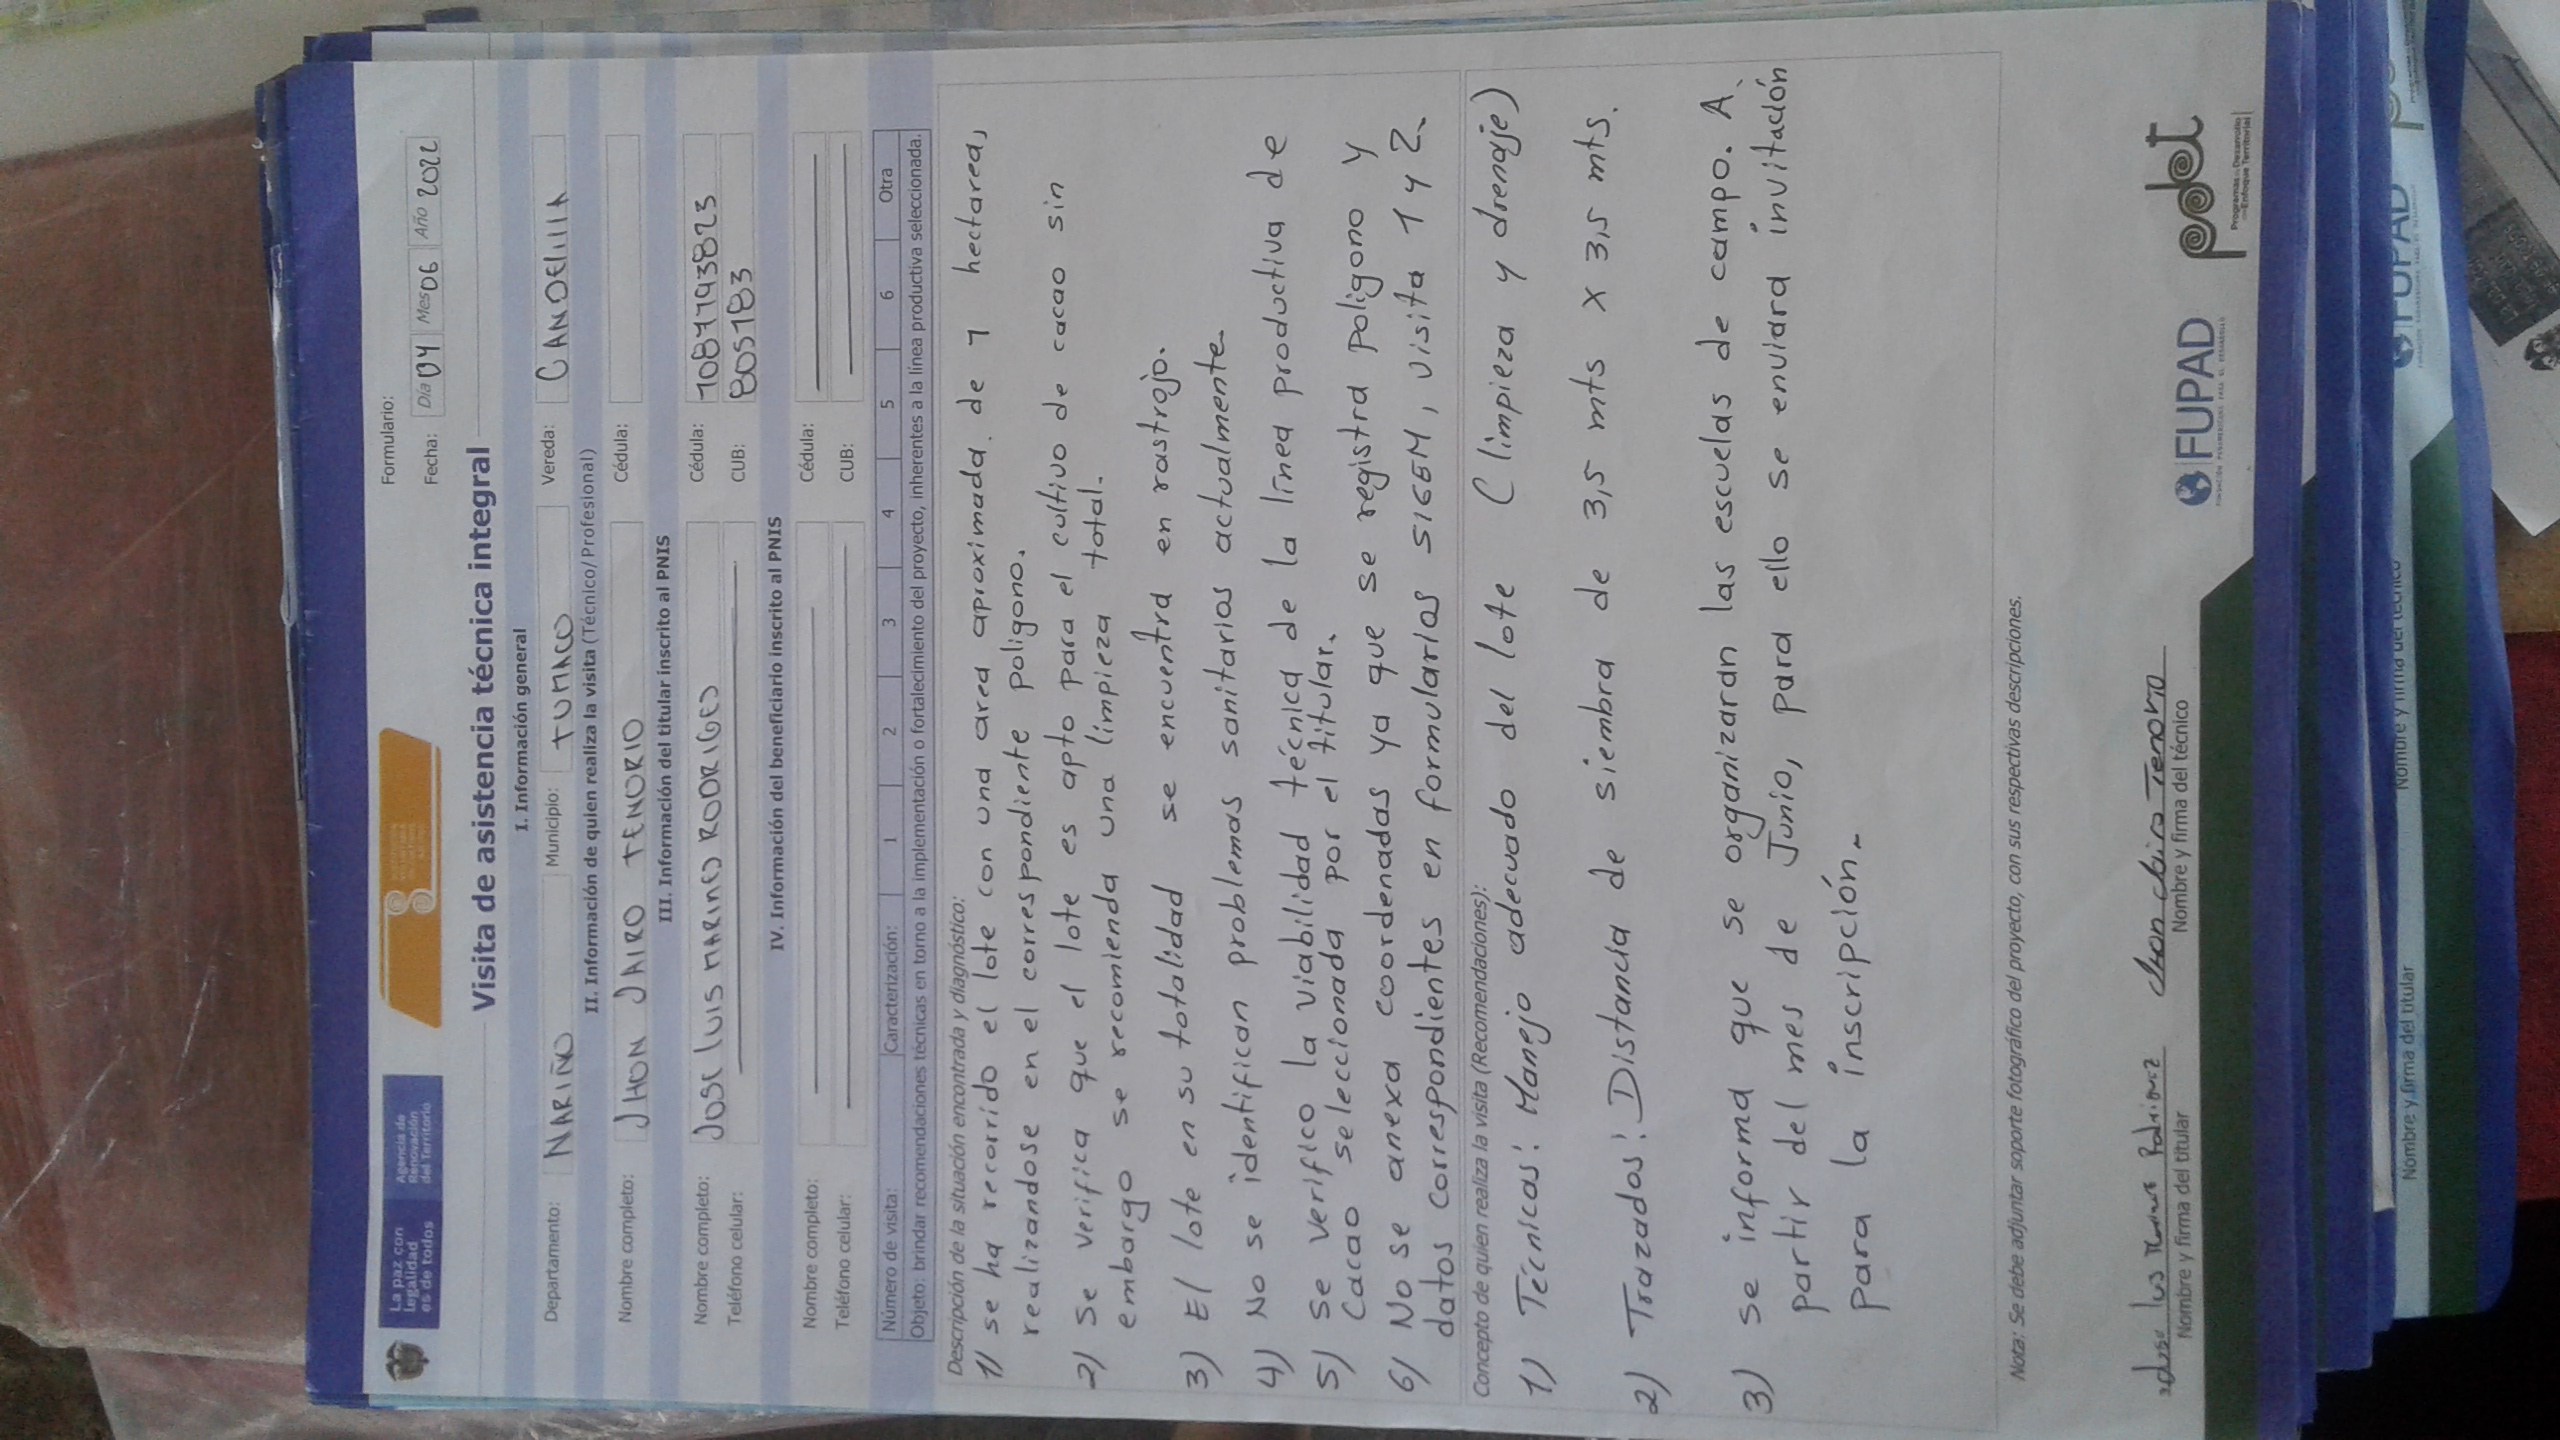 La paz con
legalidad
es de todos
Agencia de
Renovación
del Territorio
Formulario:
Fecha: Día 04 Mes 06 Año 2022
Visita de asistencia técnica integral
I. Información general
Departamento: NARIÑO Municipio: TUMACO Vereda: CANDELILLA
II. Información de quien realiza la visita (Técnico/Profesional)
Nombre completo: JHON JAIRO TENORIO Cédula:
III. Información del titular inscrito al PNIS
Nombre completo: JOSE LUIS MARINES RODRIGES Cédula: 1087193823
Teléfono celular: CUB: 8051B3
IV. Información del beneficiario inscrito al PNIS
Nombre completo: Cédula:
Teléfono celular: CUB:
Número de visita: Caracterización: 1 2 3 4 5 6 Otra
Objeto: brindar recomendaciones técnicas en torno a la implementación o fortalecimiento del proyecto, inherentes a la línea productiva seleccionada.
Descripción de la situación encontrada y diagnóstico:
1) se ha recorrido el lote con una area aproximada de 1 hectarea,
realizandose en el correspondiente poligono.
2) se verifica que el lote es apto para el cultivo de cacao sin
embargo se recomienda una limpieza total.
3) El lote en su totalidad se encuentra en rastrojo.
4) No se identifican problemas sanitarios actualmente.
5) se verifico la viabilidad técnica de la línea productiva de
cacao seleccionada por el titular.
6) No se anexa coordenadas ya que se registra poligono y
datos correspondientes en formularios SIGEM, visita 1 y 2.
Concepto de quien realiza la visita (Recomendaciones):
1) Técnicas: Manejo adecuado del lote (limpieza y drenaje)
2) Trazados: Distancia de siembra de 3,5 mts x 3,5 mts.
3) se informa que se organizaran las escuelas de campo. A
partir del mes de Junio, para ello se enviara invitación
para la inscripción.
Nota: Se debe adjuntar soporte fotográfico del proyecto, con sus respectivas descripciones.
Jose luis Jhon Jairo Tenorio
Nombre y firma del titular Nombre y firma del técnico
FUPAD
FUNDACIÓN PANAMERICANA PARA EL DESARROLLO
pdet
Programas de Desarrollo
con Enfoque Territorial
Nombre y firma del titular Nombre y firma del técnico
FUPAD